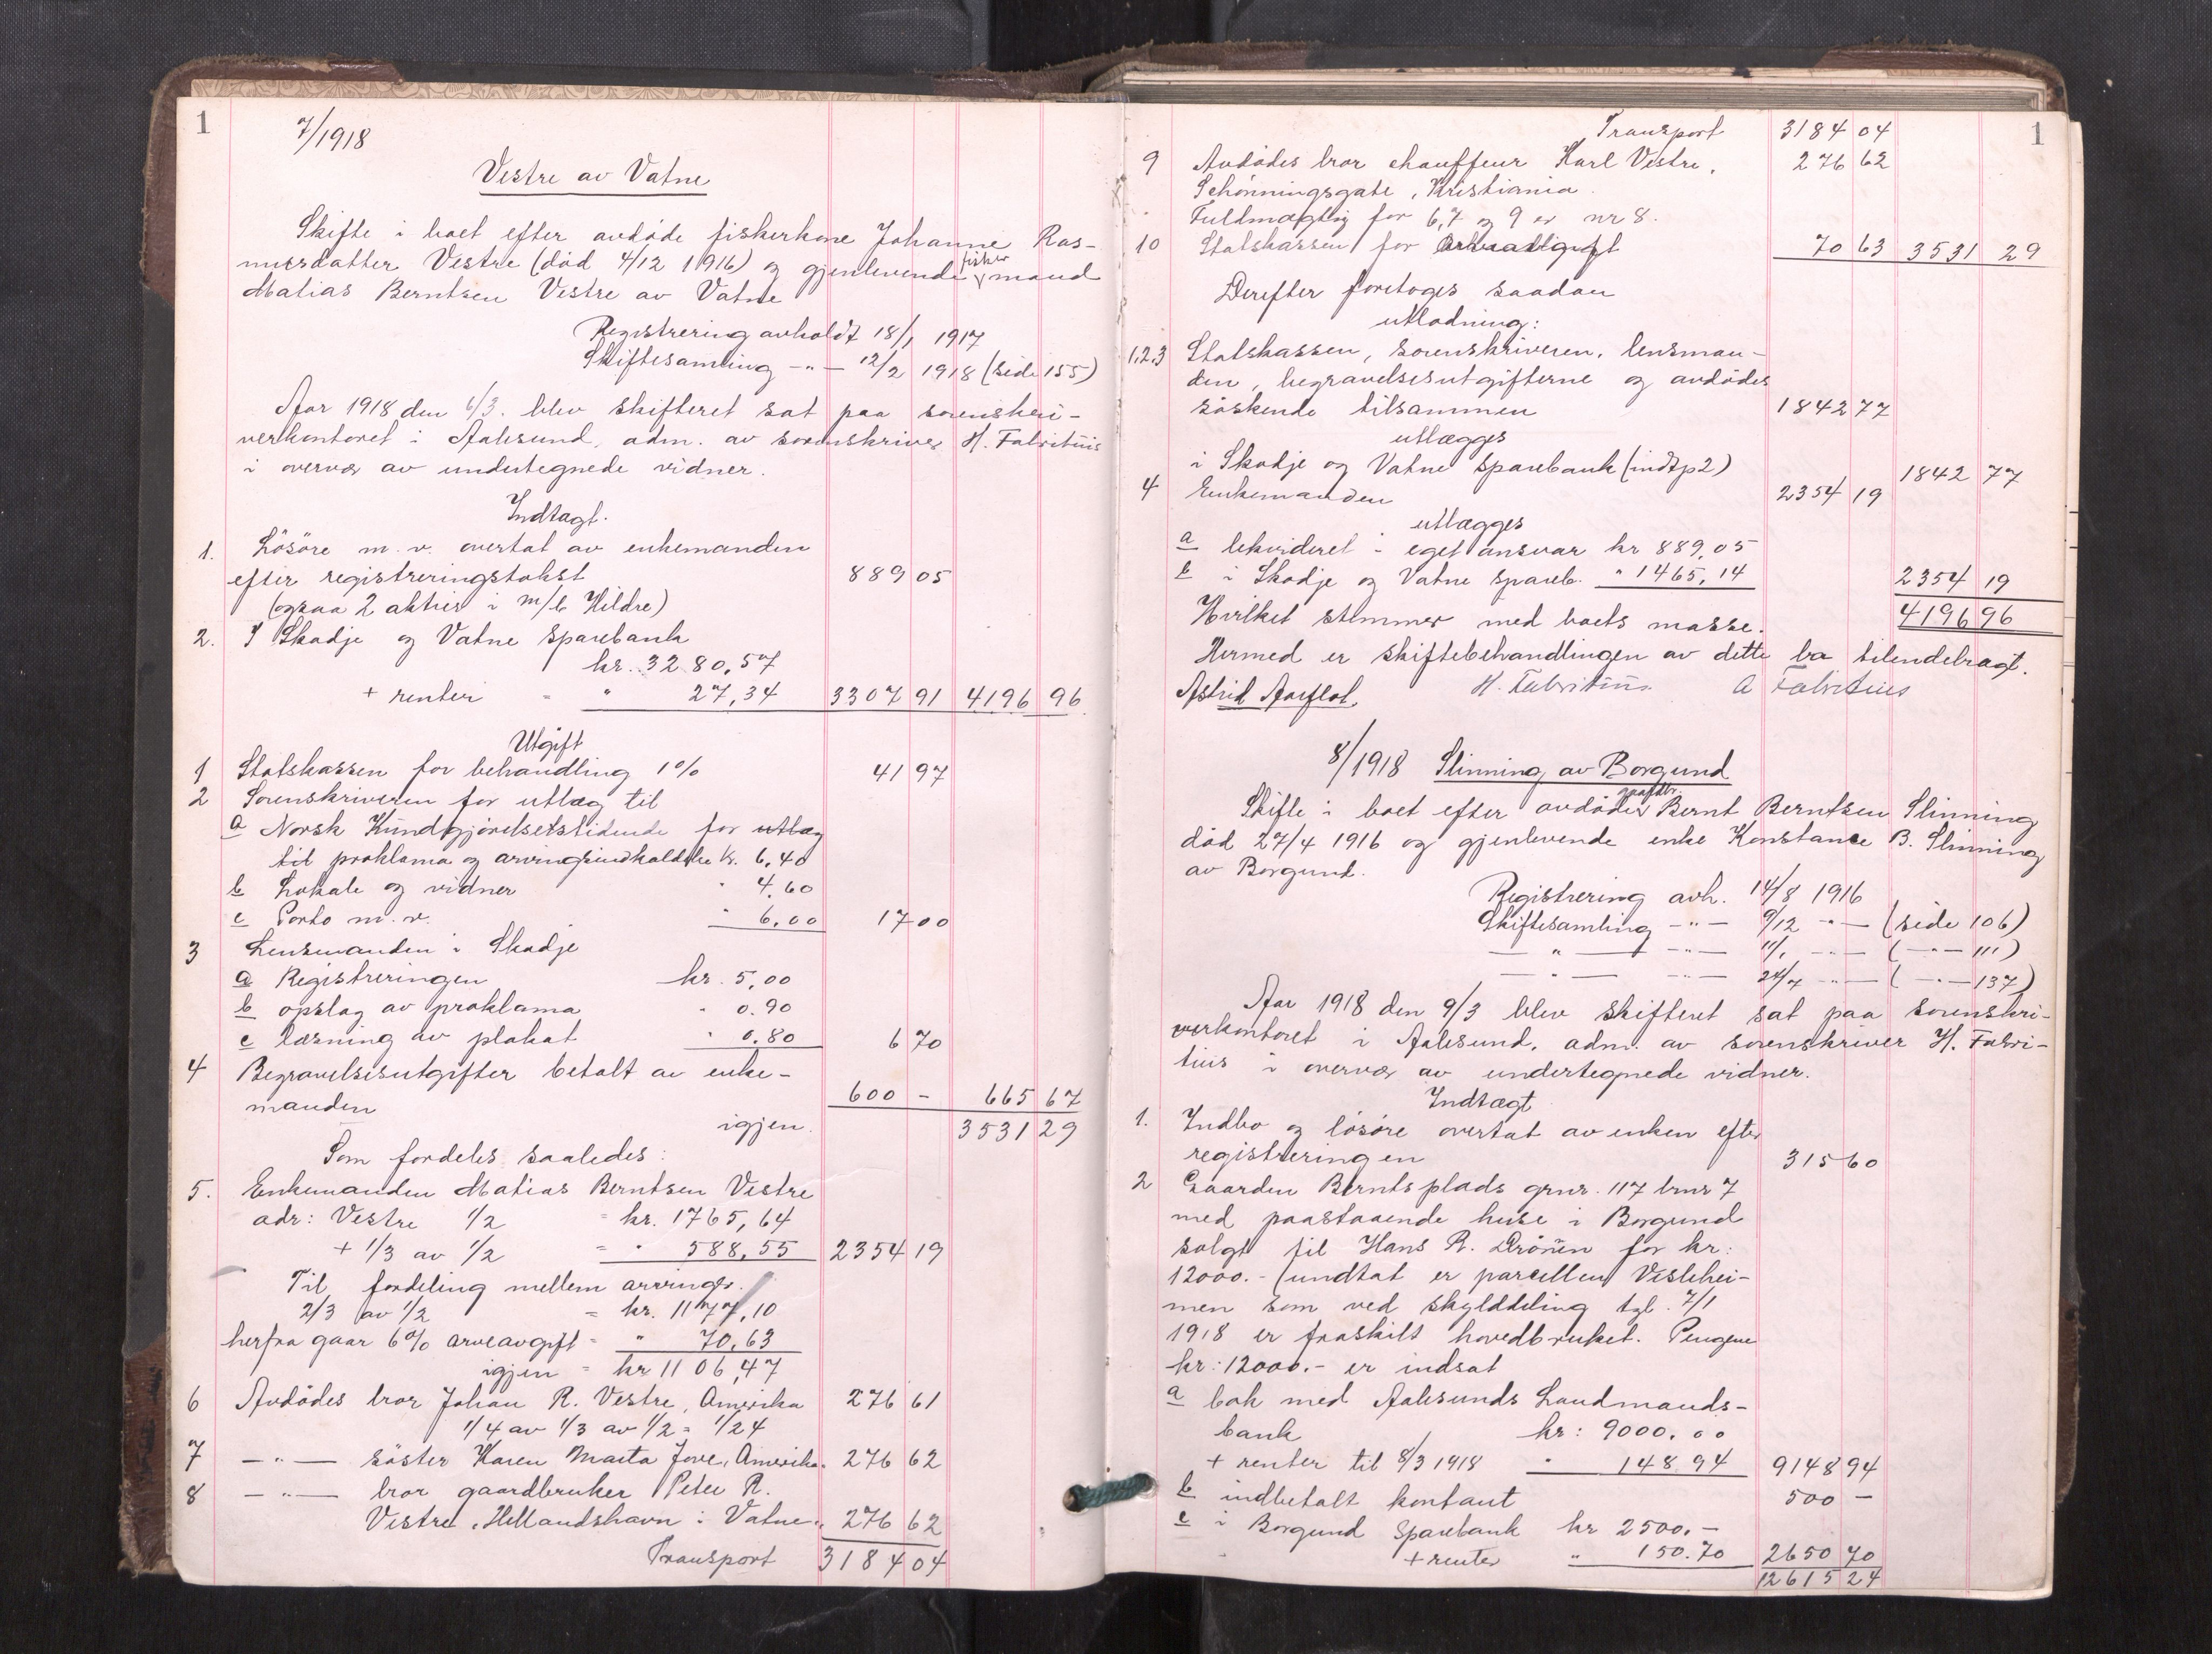 1
7/1918
Vestre av Vatne
Skifte i boet efter avdøde fiskerkone Johanne Ras-
musdatter Vestre (død 4/12 1916) og gjenlevende fisker mand
Matias Berntsen Vestre av Vatne
Registrering avholdt 18/1 1917
Skiftesamling -"- 12/2 1918 (side 155)
Aar 1918 den 6/3. blev skifteret sat paa sorenskri-
verkontoret i Aalesund, adm. av sorenskriver H. Fabritius
i overvær av undertegnede vidner.
Indtægt.
1. Løsøre m. v. overtat av enkemanden
efter registreringstakst 889 05
(ogsaa 2 aktier i m/b Hildre)
2. I Skodje og Vatne Sparebank
kr. 3280,57
+ renter = " 27,34 3307 91 4196 96
Utgift
1 Statskassen for behandling 1% 41 97
2 Sorenskriveren for utlæg til
a Norsk Kundgjørelsestidende for utlæg
til proklama og arvingsindkaldelse kr. 6,40
b Lokale og vidner " 4,60
c Porto m. v. " 6,00 17 00
3 Lensmanden i Skodje
a Registreringen kr. 5,00
b opslag av proklama " 0.90
c læsning av plakat " 0.80 6 70
4 Begravelsesutgifter betalt av enke-
manden 600 - 665 67
igjen. 3531 29
Som fordeles saaledes:
5. Enkemanden Matias Berntsen Vestre
adr: Vestre 1/2 = kr. 1765,64
+ 1/3 av 1/2 = " 588,55 2354 19
Til fordeling mellem arvinger.
2/3 av 1/2 = kr. 1177,10
herfra gaar 6% arveavgift = " 70,63
igjen = kr 1106,47
6 Avdødes bror Johan R. Vestre, Amerika 276 61
1/4 av 1/3 av 1/2 = 1/24
7 -"- søster Karen Marta Jove, Amerika. 276 62
8 -"- bror gaardbruker Peter R.
Vestre, Hellandshavn i Vatne. 276 62
Transport 3184 04
1
Transport 3184 04
9 Avdødes bror chauffeur Karl Vestre, 276 62
Schønningsgate, Kristiania.
Fuldmægtig for 6,7 og 9 er nr 8.
10 Statskassen for arveavgift 70 63 3531 29
Derefter foretoges saadan
utlodning:
1,2,3 Statskassen, sorenskriveren, lensman-
den, begravelsesutgifterne og avdødes
søskende tilsammen 1842 77
utlægges
i Skodje og Vatne Sparebank (indt p 2) 1842 77
4 Enkemanden 2354 19
utlægges
a likvideret i eget ansvar kr 889,05
b i Skodje og Vatne Spareb. " 1465,14 2354 19
Hvilket stemmer med boets masse. 4196 96
Hermed er skiftebehandlingen av dette bo tilendebragt.
Astrid Aarflot. H. Fabritius A Fabritius
8/1918 Slinning av Borgund
Skifte i boet efter avdøde gaardbr. Bernt Berntsen Slinning
død 27/4 1916 og gjenlevende enke Konstance B. Slinning
av Borgund.
Registrering avh. 14/8 1916
Skiftesamling -"- 9/12 -"- (side 106)
-"- -"- 11/1 -"- (-"- 111)
-"- -"- 24/7 -"- (-"- 137)
Aar 1918 den 9/3 blev skifteret sat paa sorenskri-
verkontoret i Aalesund, adm. av sorenskriver H. Fabri-
tius i overvær av undertegnede vidner.
Indtægt
1. Indbo og løsøre overtat av enken efter
registreringen 315 60
2 Gaarden Berntsplads grnr. 117 brnr 7
med paastaaende huse i Borgund
solgt til Hans R. Drönen for kr:
12000.- (undtat er parcellen Veslehei-
men som ved skylddeling tgl. 7/1
1918 er fraskilt hovedbruket. Pengene
kr: 12000.- er indsat
a bok med Aalesunds Landmands-
bank kr: 9000.00
+ renter til 8/3 1918 " 148 94 9148 94
b indbetalt kontant 500 -
c i Borgund Sparebank kr 2500.-
+ renter " 150.70 2650 70
12615 24